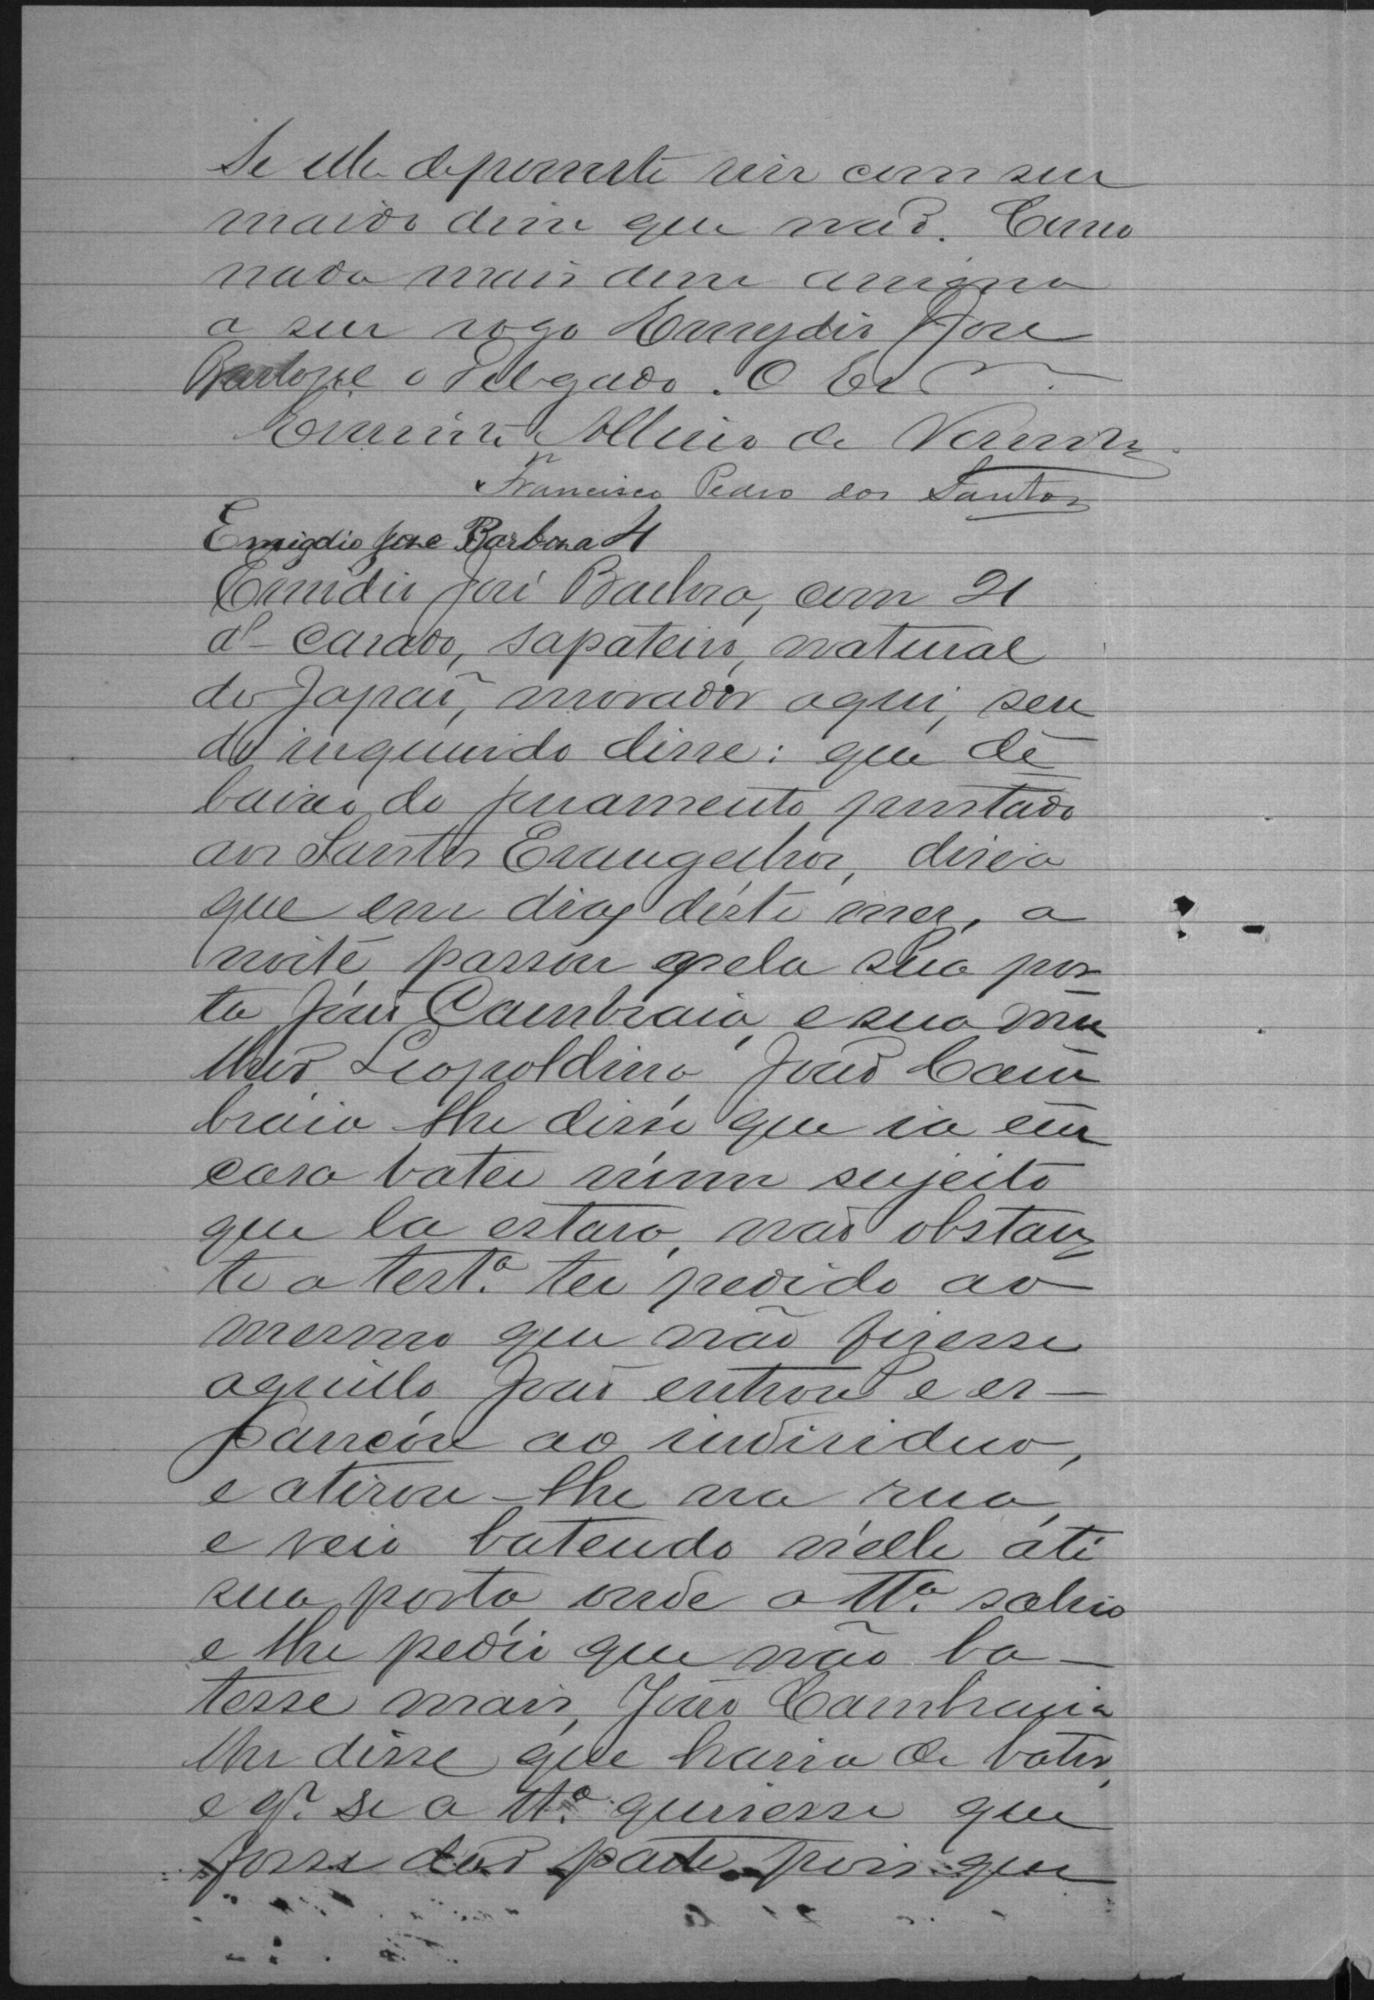 Se elle depoente vive com seu
marido disse que não. Como
nada mais disse assigna
a seu rogo Emygdio José
Barbosa o Delgado. O Es
de
Francisco Pedro dos Santos
Emigdio Jose Barboza 4
Emidio José Barbosa, com 21
aˢ casado, sapateiro, natural
de Japão, morador aqui, sen
do inquerido disse: que de
baixo do juramento prestado
aos Santos Evangelhos, diria
que em dias d'este mez, a
noite passou pela sua por
ta João Cambraia e sua mu
lher Leopoldina, João Cam
braia lhe disse que ia em
casa bater n'um sujeito
que la estava, não obstan
te a testª ter pedido ao
mesmo que não fizesse
aquillo João entrou e es-
pancou ao individuo,
e atirou-lhe na rua,
e veio batendo n'elle até
sua porta onde a ttª sahio
e lhe pediu que não ba-
tesse mais, João Cambraia
lhe disse que havia de bater,
e qᵉ se a ttª quizesse que
fosse dar parte pois que